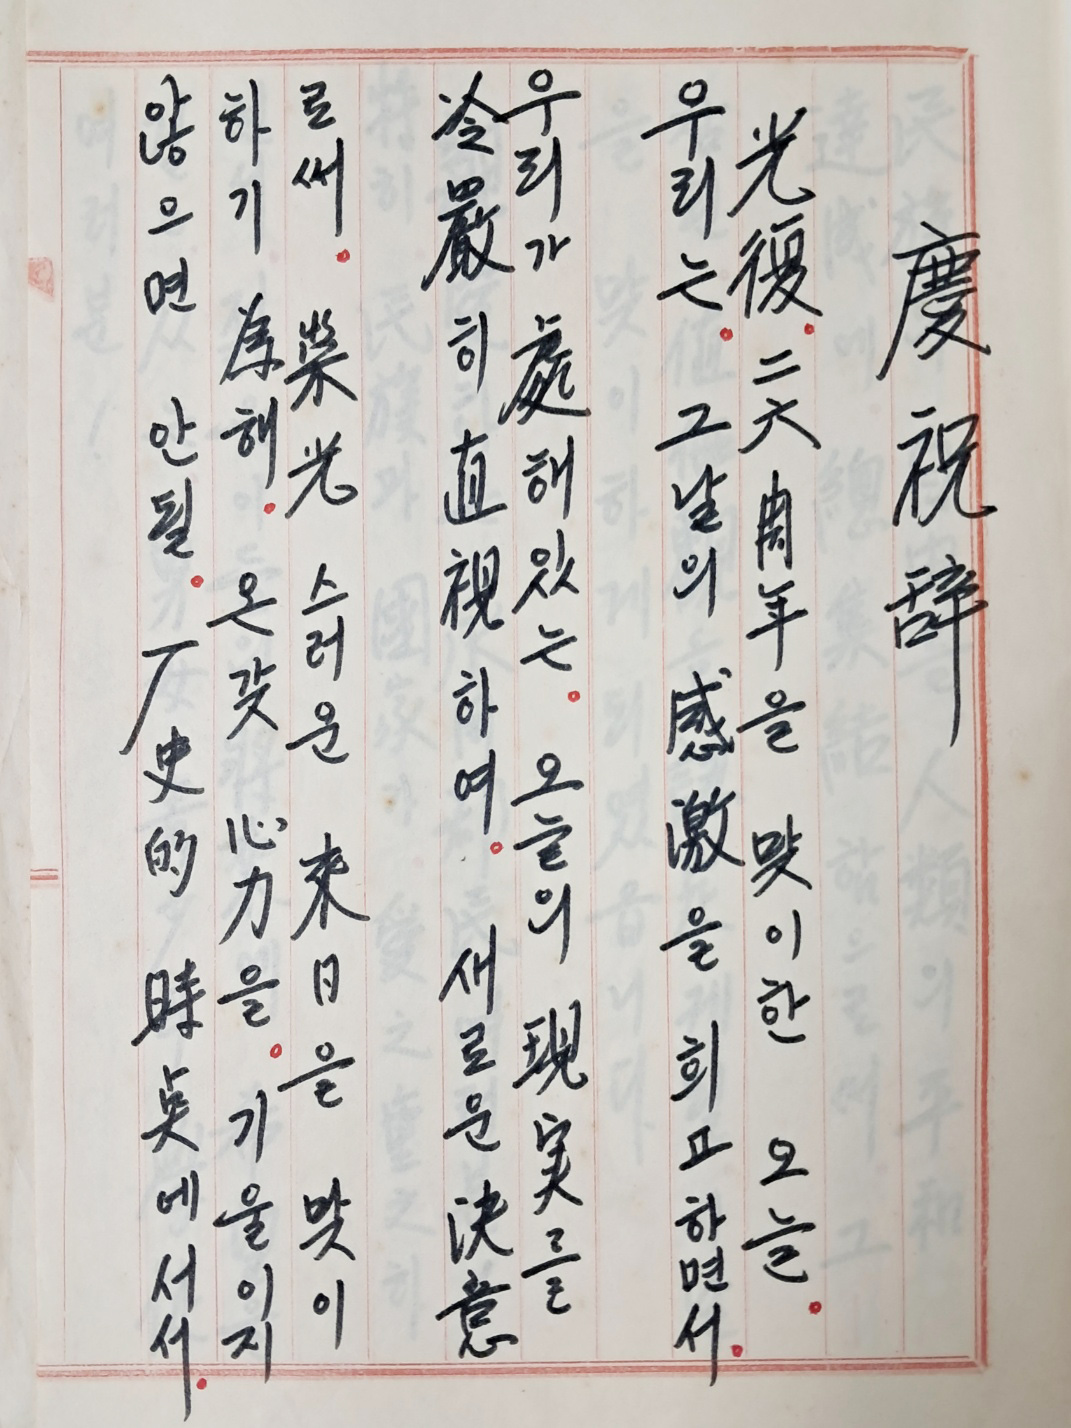 慶祝辞
光復 二六周年을 맞이한 오늘
우리는 그날의 感激을 희고하면서
우리가 處해있는 오늘의 現実를
冷嚴히 直視하여 새로운 決意
로써 榮光스러운 來日을 맞이
하기 為해 온갖 心力을 기울이지
않으면 안될 厂史的 時点에 서서